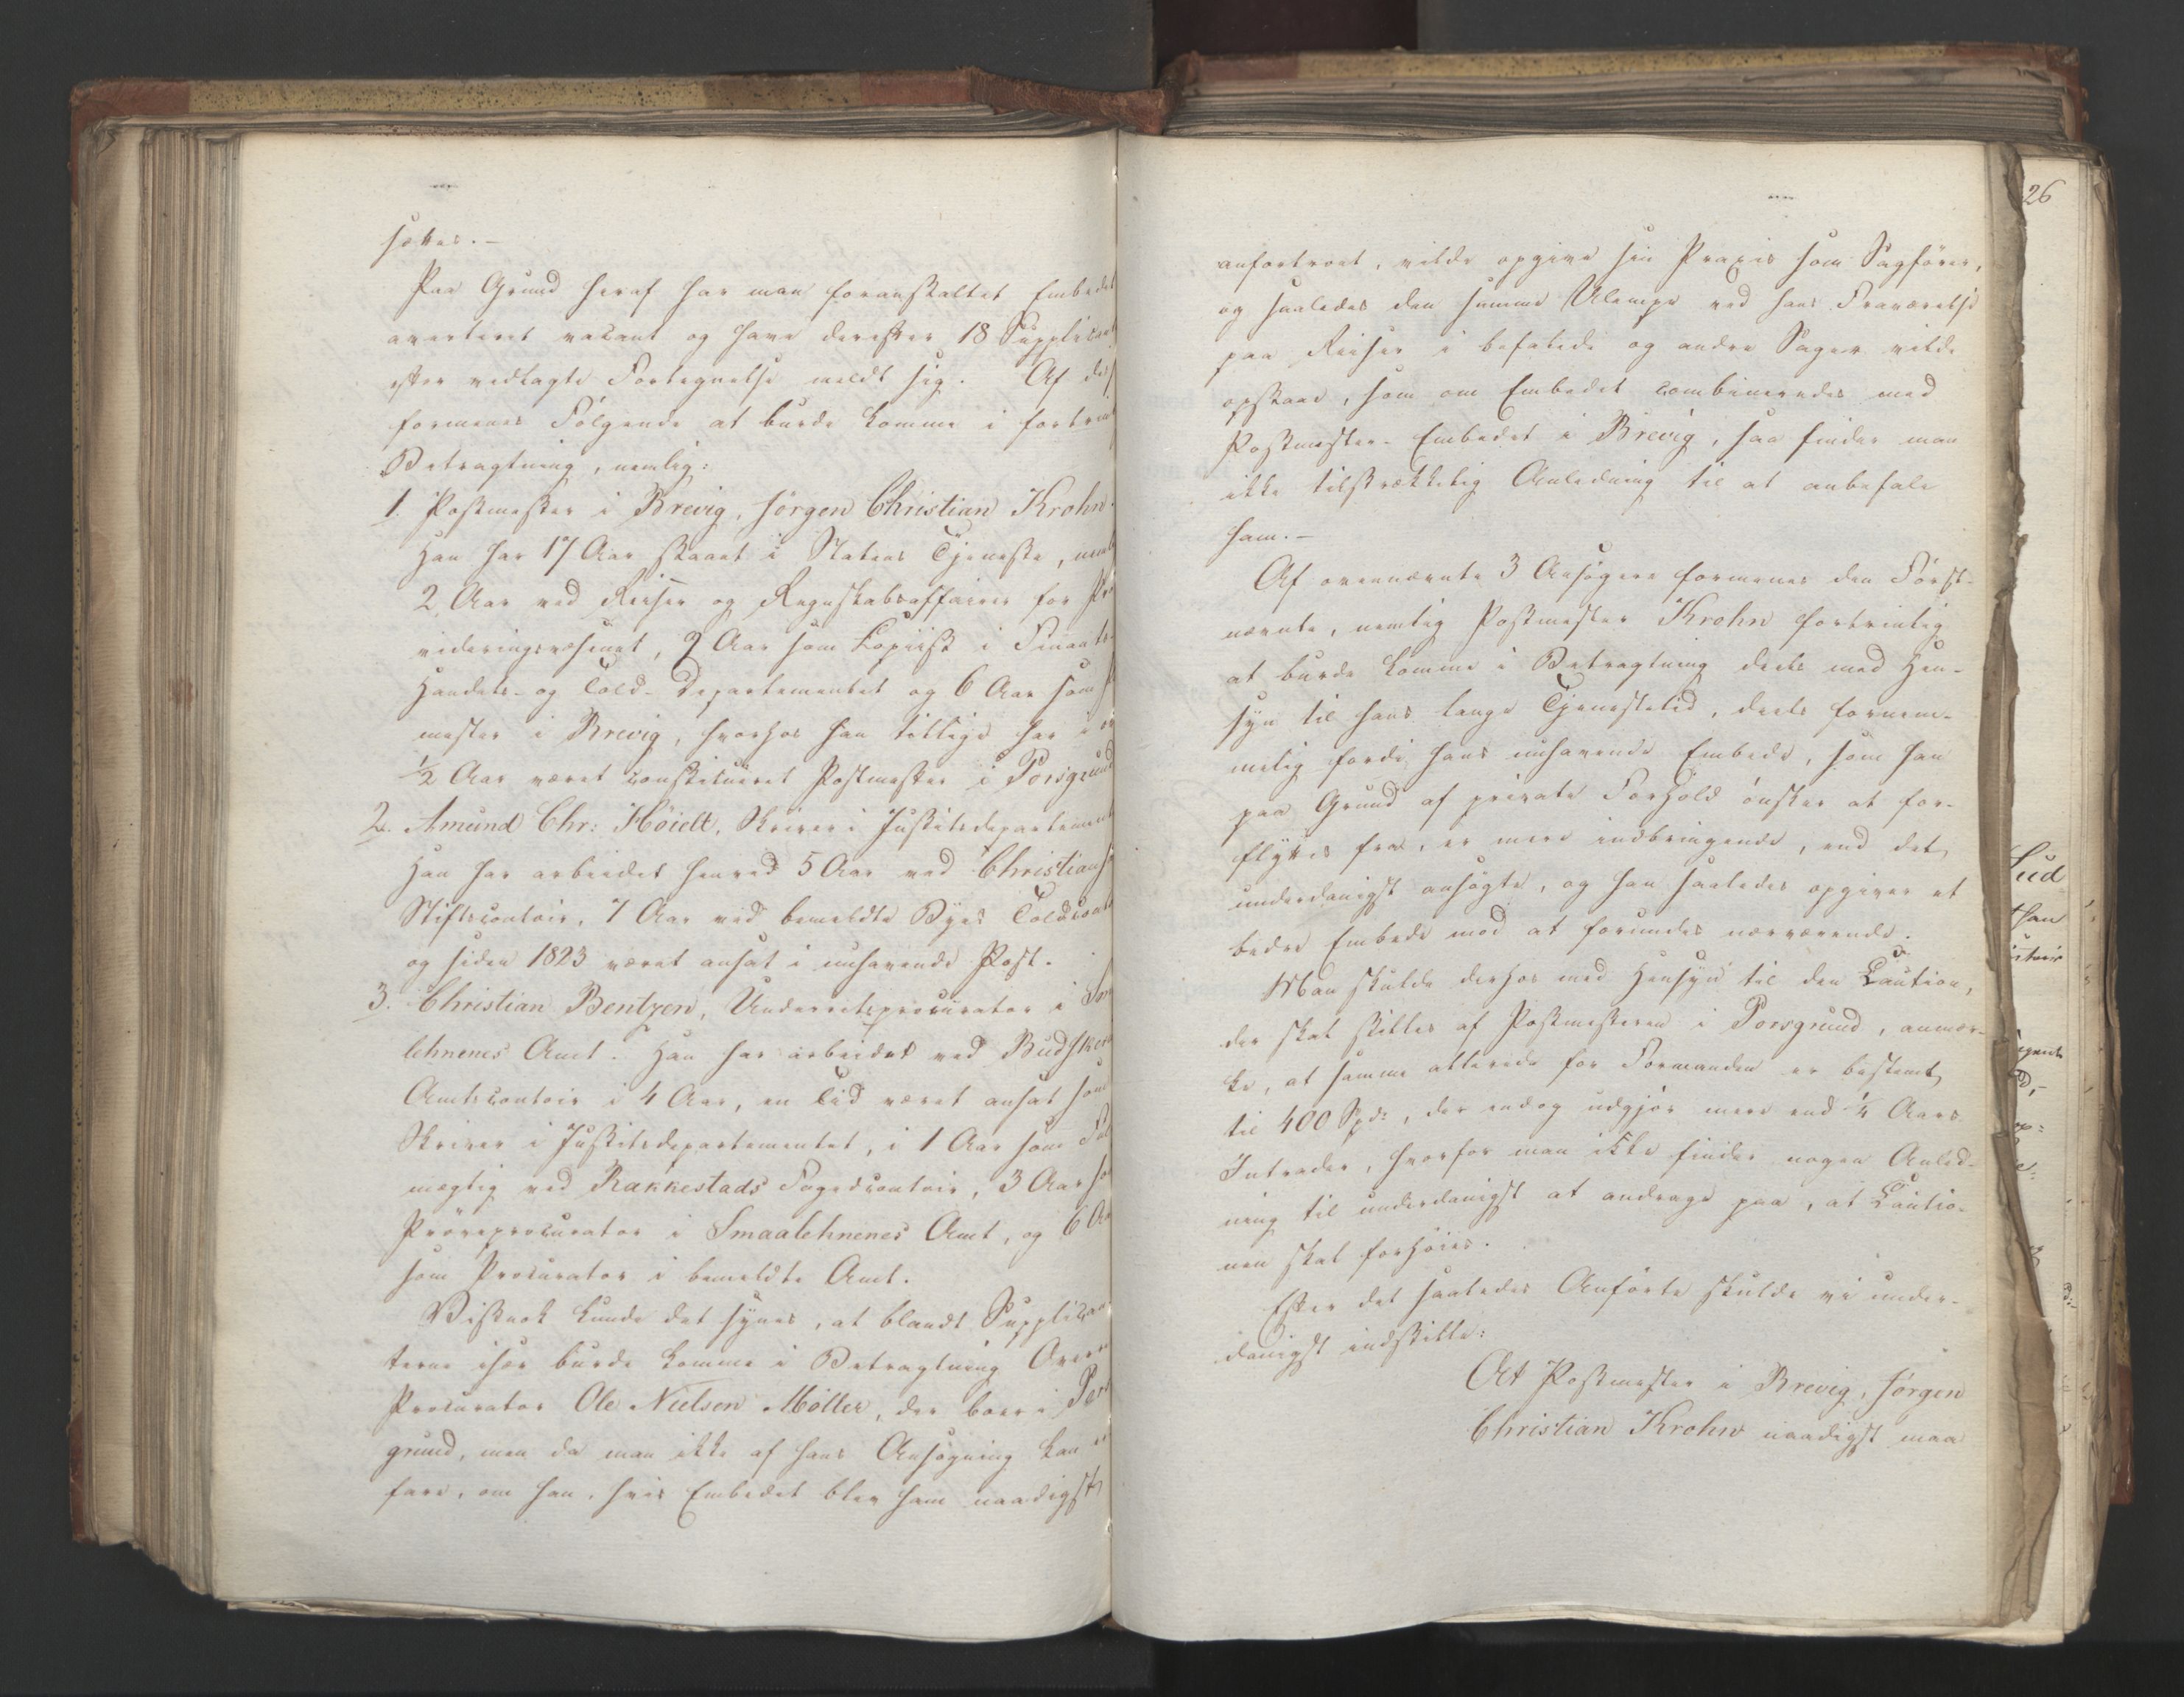 sættes.-
Paa Grund heraf har man foranstaltet Embedet
averteret vacant og have derefter 18 Supplicant
efter vedlagte Fortegnelse meldt sig. Af des
formenes Følgende at burde komme i fortrin
Betragtning, nemlig:
1. Postmester i Brevig, Jørgen Christian Krohn.
Han har 17 Aar staaet i Statens Tjeneste, neml
2 Aar ved Reiser og Regnskabsaffairer for Pro
videringsvæsenet, 9 Aar som Copiist i Finants-
Handels- og Told-Departementet og 6 Aar som
mester i Brevig, hvorhos han tillige har i
½ Aar været constitueret Postmester i Porsgrund
2. Amund Chr: Høielt, Skriver i Justitsdepartement
Han har arbeidet henved 5 Aar ved Christians
Stiftscontoir, 7 Aar ved bemeldte Byes Toldcont
og siden 1823 været ansat i innehavende Post.
3. Christian Bentzen, Underretsprocurator i Sm
lehnenes Amt. Han har arbeidet ved Budsker
Amtscontoir i 4 Aar, en Tid været ansat som
Skriver i Justitsdepartementet, i 1 Aar som Ful
mægtig ved Rakkestads Fogedcontoir, 3 Aar so
Prøveprocurator i Smaalehnenes Amt, og 6 Aa
som Procurator i bemeldte Amt.
Vistnok kunde det synes, at blandt Supplican
terne især burde komme i Betragtning Overr
Procurator Ole Nielsen Møller, der boer i Pors
grund, men da man ikke af hans Ansøgning kan er
fare, om han, hvis Embedet blev ham naadigst
26
anfortroet, vilde opgive sin Praxis som Sagfører,
og saaledes den samme Ulempe ved hans Fraværelse
paa Reiser i befalede og andre Sager vilde
opstaae, som om Embedet combineredes med
Postmester-Embedet i Brevig, saa finder man
ikke tilstrækkelig Anledning til at anbefale
ham.-
Af ovennævnte 3 Ansøgere formenes den Først-
nævnte, nemlig Postmester Krohn fortrinlig
at burde komme i Betragtning deels med Hen-
syn til hans lange Tjenestetid, deels fornem-
melig fordi hans innehavende Embede, som han
paa Grund af private Forhold ønsker at for-
flyttes fra, er mere indbringende, end det
underdanigst ansøgte, og han saaledes opgiver et
bedre Embede mod at forundes nærværende.
Man skulde derhos med Hensyn til den Caution,
der skal stilles af Postmesteren i Porsgrund, anmær-
ke, at samme allerede for Formanden er bestemt
til 400 Spd:, der endog udgjør mere end ¼ Aars
Intrader, hvorfor man ikke finder nogen Anled-
ning til underdanigst at andrage paa, at Cautio-
nen skal forhøies.
Efter det saaledes Anførte skulde vi under-
danigst indstille:
At Postmester i Brevig, Jørgen
Christian Krohn naadigst maa